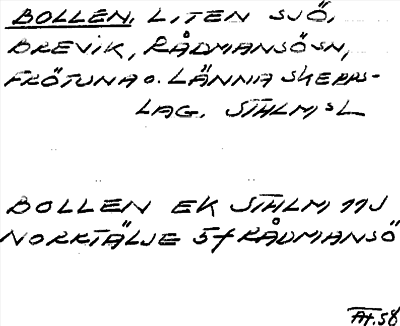 BOLLEN, LITEN SJÖ,
BREVIK, RÅDMANSÖ SN,
FRÖTUNA O. LÄNNA SKEPPS-
LAG. STHLMS L
BOLLEN EK STHLM 11J
NORRTÄLJE 5f RÅDMANSÖ